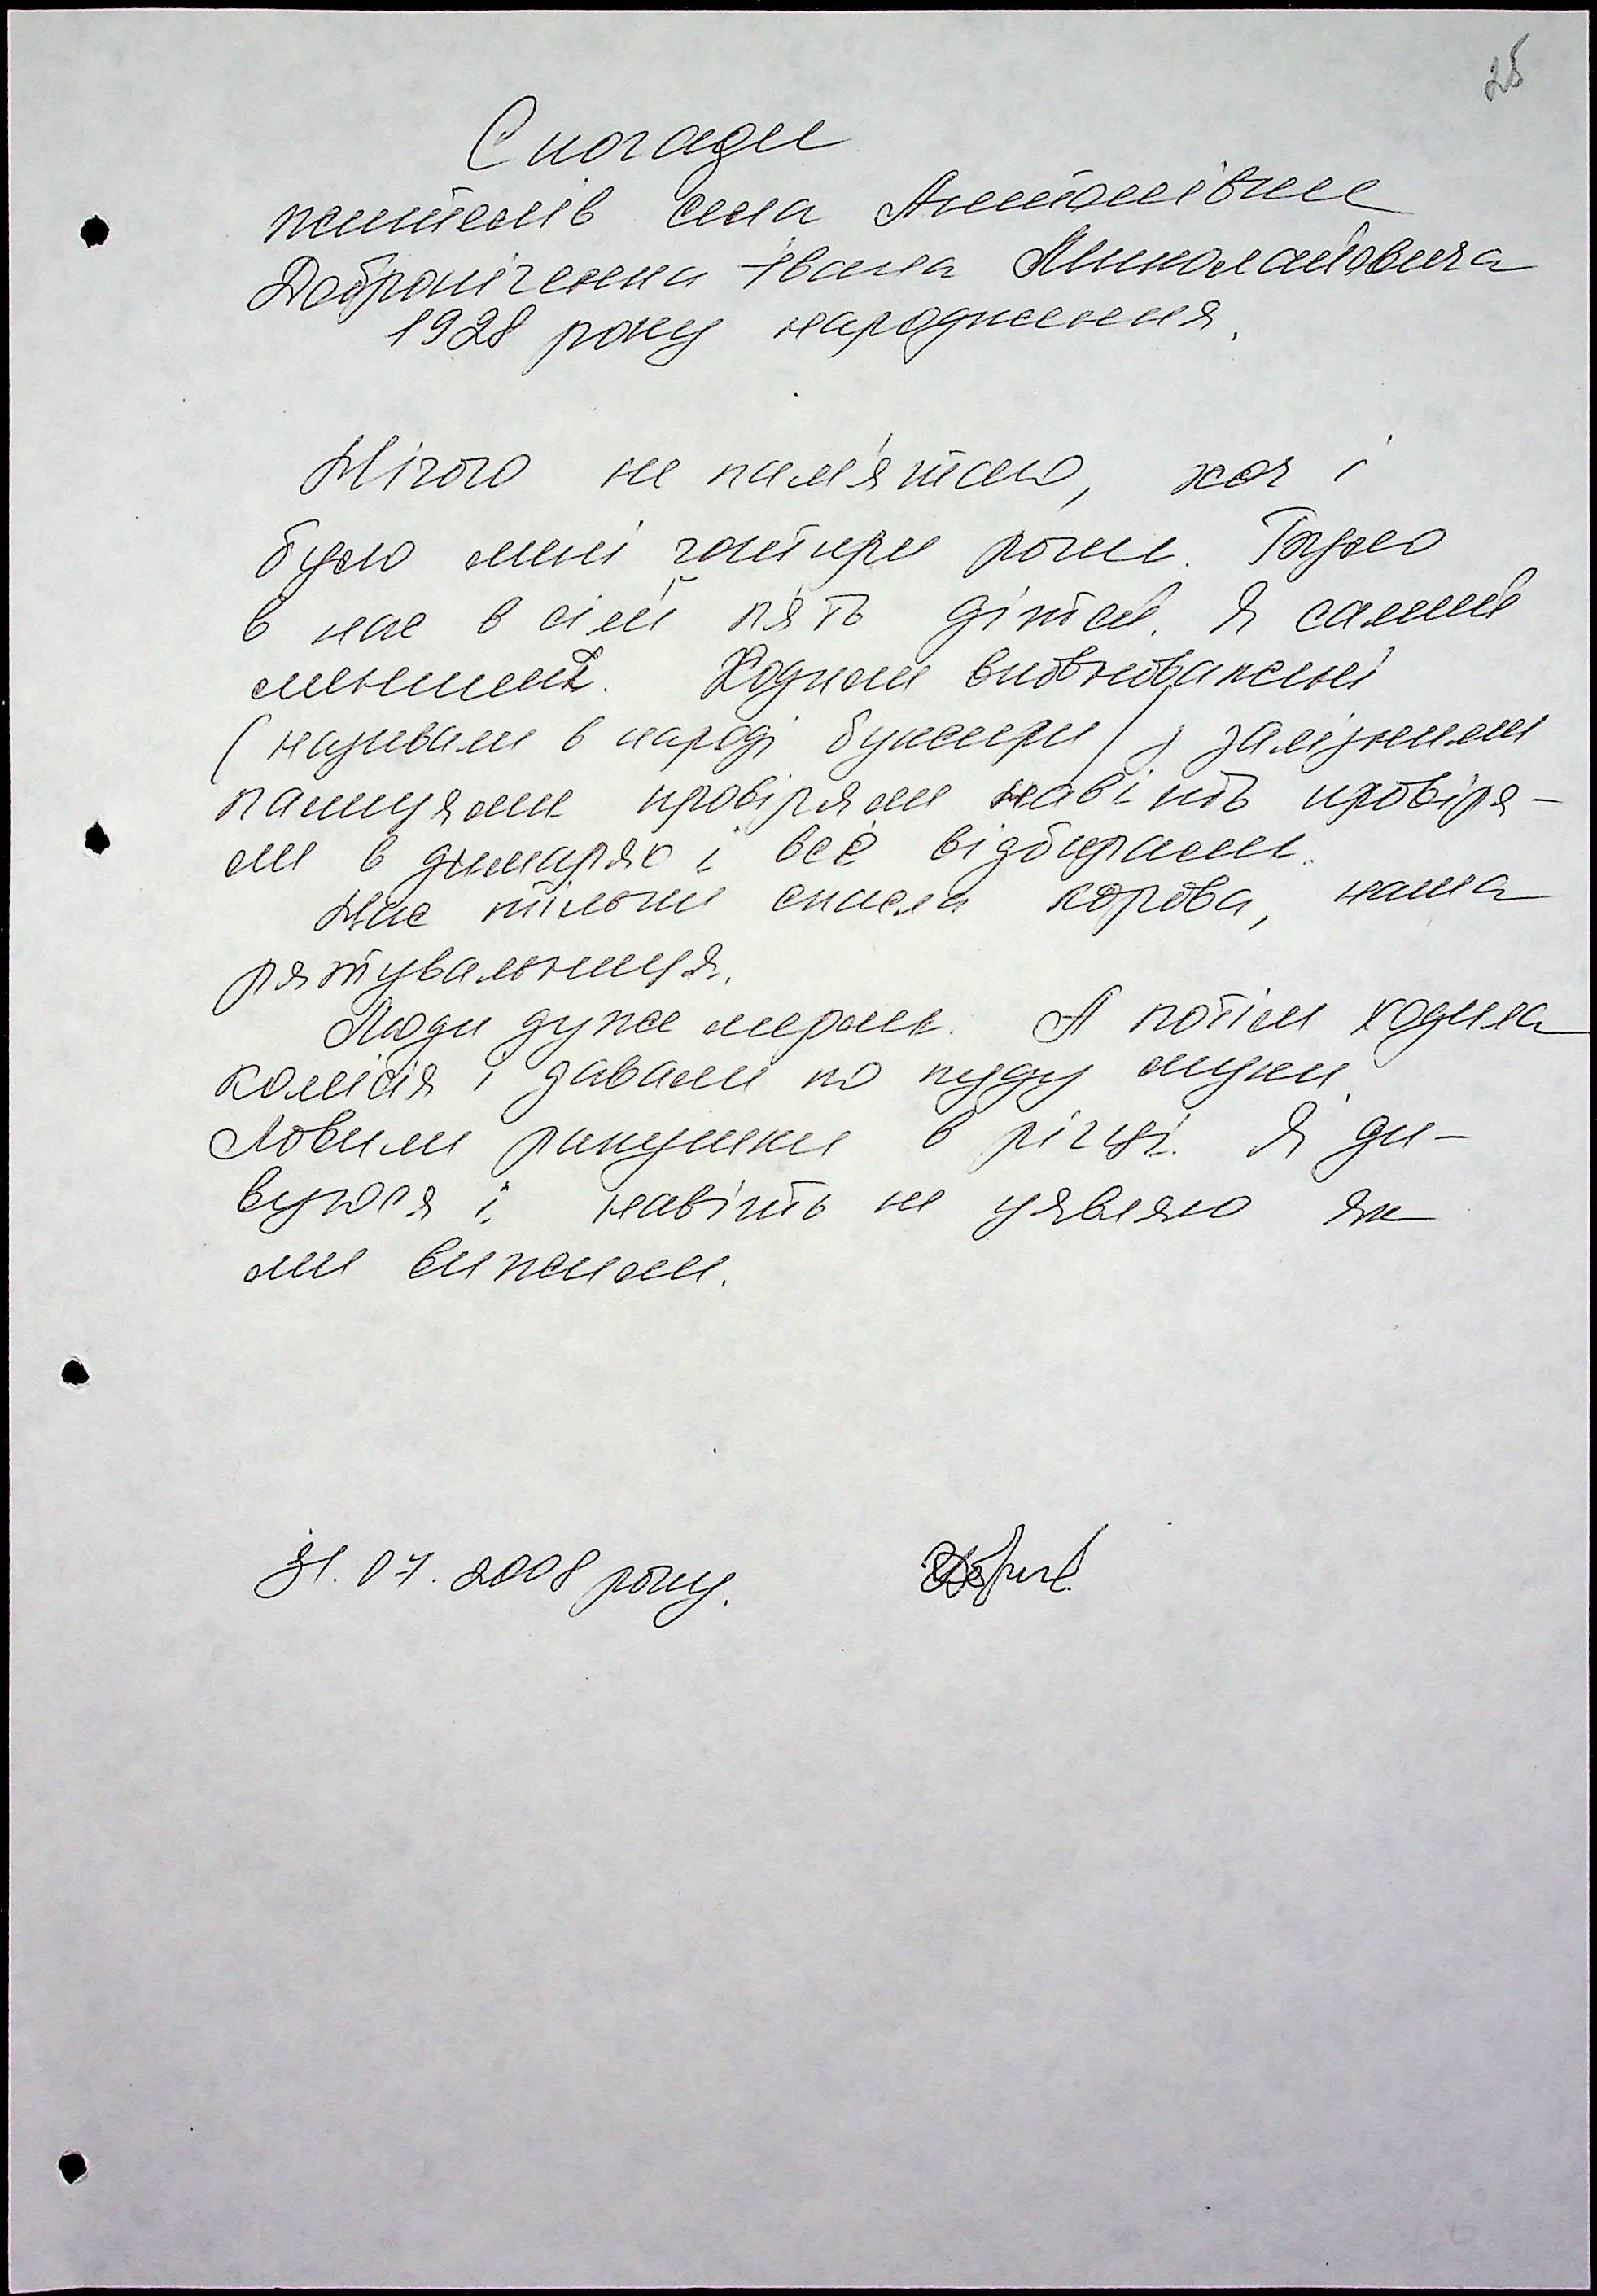 28
Спогади
жителів села Антонівни
Доброніченка Івана Миколайовича
1928 року народження.
Нічого не пам'ятаю, хоч і
було мені чотири роки. Було
в нас в сім'ї п'ять дітей. Я самий
менший. Ходили виповноважені
(називали в народі буксири) з залізними
пащуями провіряли навіть провіря-
ли в димарях і всё відбирали.
Нас тільки спасла корова, наша
рятувальниця.
Люди дуже мерли. А потім ходила
комісія і давали по пуду муки.
Ловили ракушки в річці. Я ди-
вуюся і навіть не уявляю як
ми вижили.
31.07.2008 року.